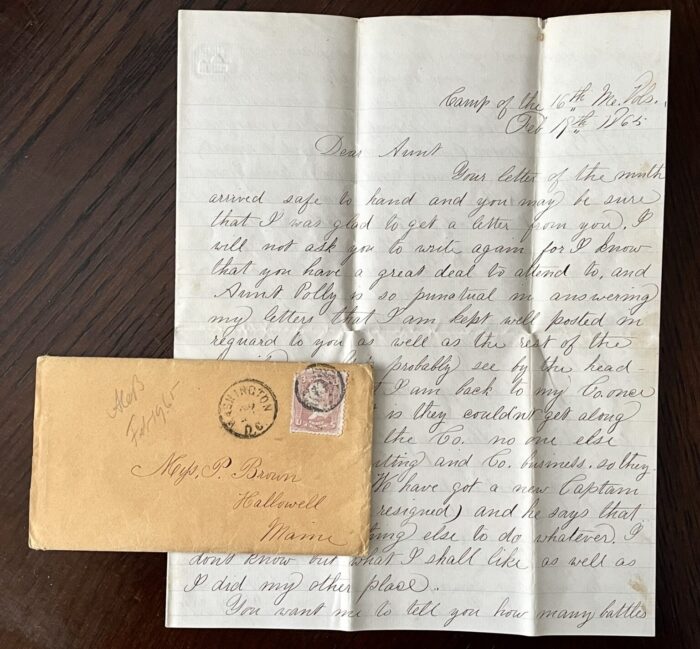 Camp of the 16th Me. Vols.
Feb. 19th 1865
Dear Aunt
Your letter of the ninth
arrived safe to hand and you may be sure
that I was glad to get a letter from you. I
will not ask you to write again for I know
that you have a great deal to attend to, and
Aunt Polly is so punctual in answering
my letters that I am kept well posted in
reguard to you as well as the rest of the
probably see by the head-
I am back to my Co. once
is they couldn't get along
the Co. no one else
and Co. business. so they
We have got a new Captain
resigned) and he says that
else to do whatever. I
don't know but what I shall like as well as
I did my other place.
You want me to tell you how many battles
WASHINGTON
D.C.
Feb 19 65
Miss. P. Brown
Hallowell
Maine